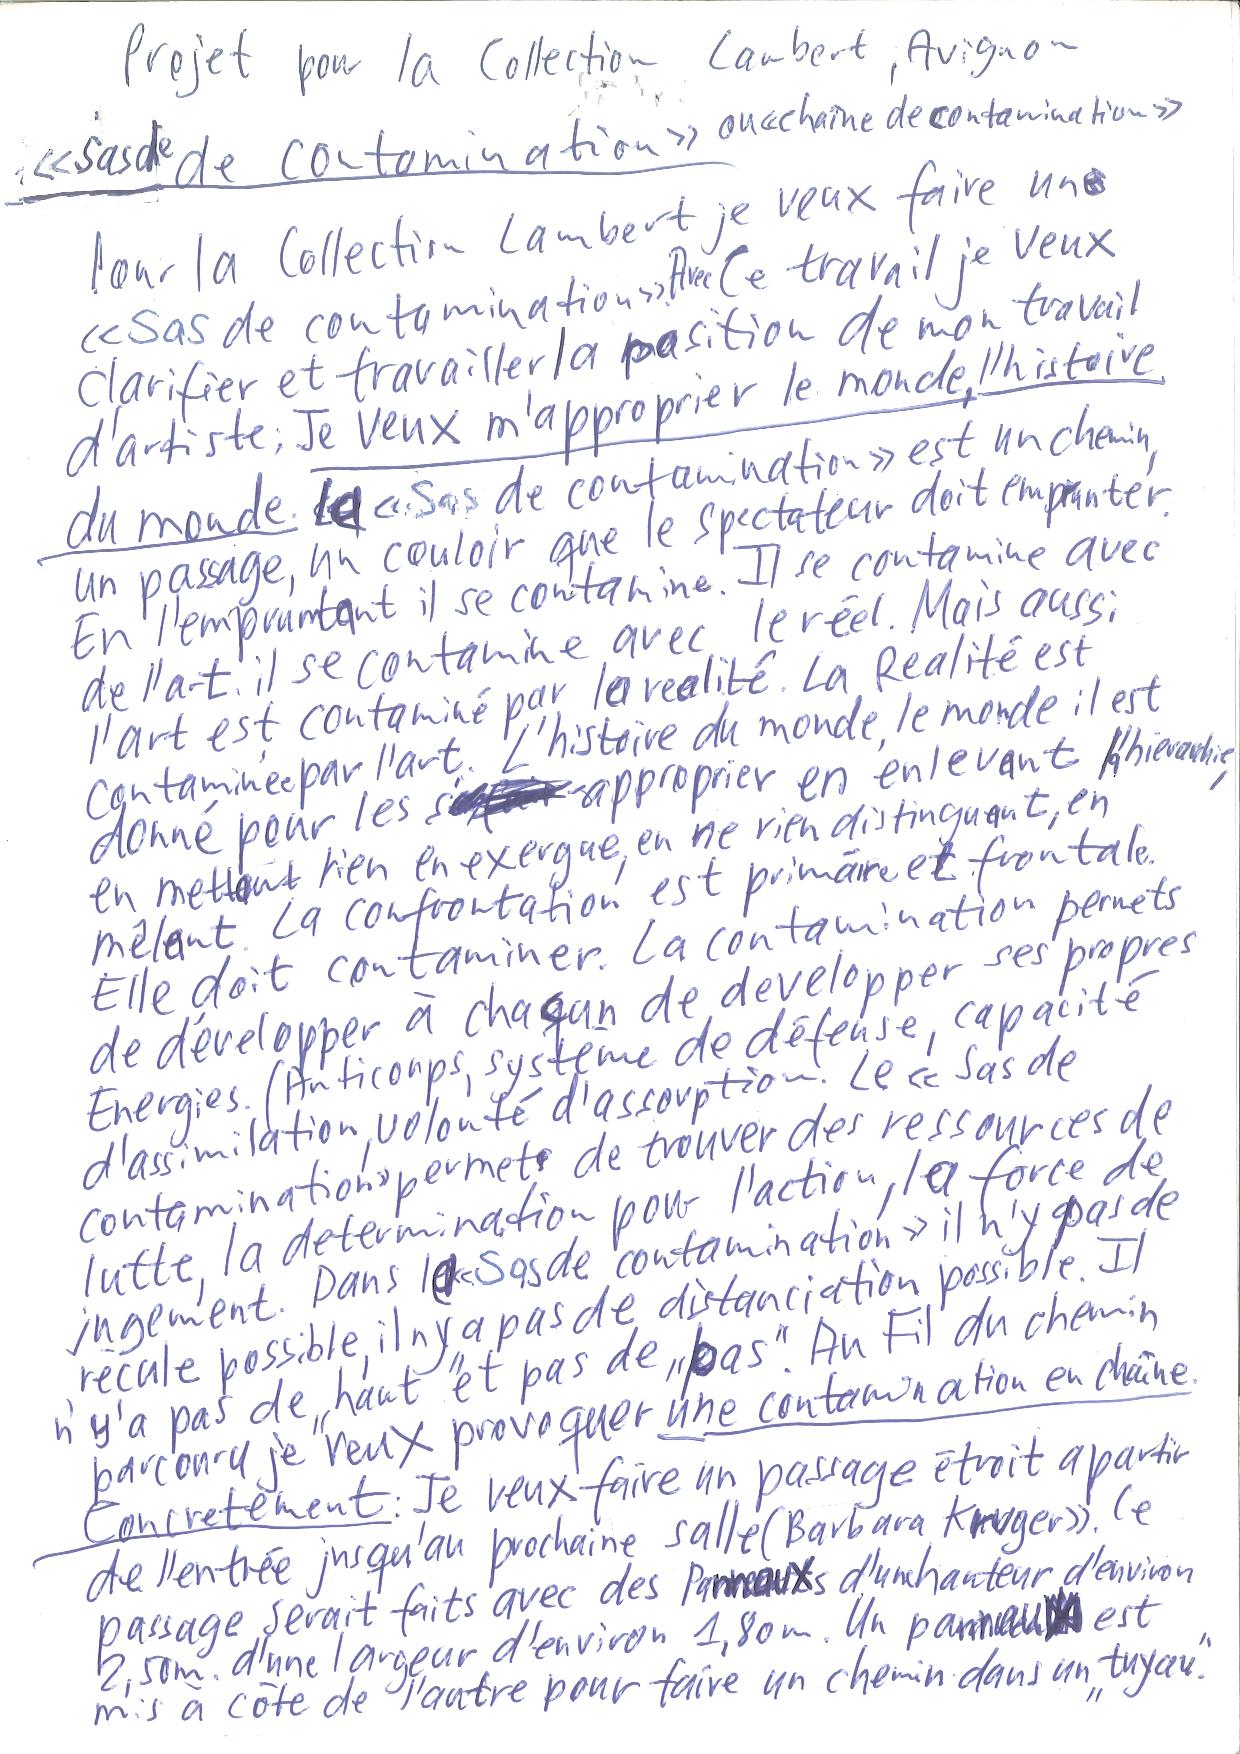 Projet pour la Collection Lambert, Avignon
«Sas de de contamination» ou «chaîne de contamination»
Pour la Collection Lambert je veux faire une
«Sas de contamination». Avec Ce travail je veux
clarifier et travailler la position de mon travail
d'artiste: Je veux m'approprier le monde, l'histoire
du monde. Le «Sas de contamination» est un chemin,
un passage, un couloir que le spectateur doit emprunter.
En l'empruntant il se contamine. Il se contamine avec
de l'art. il se contamine avec le réel. Mais aussi
l'art est contaminé par la realité. La Realité est
contaminée par l'art. L'histoire du monde, le monde il est
donné pour les approprier en enlevant l'hierarchie,
en mettant rien en exergue, en ne rien distinguant, en
mêlant. La confrontation est primäre et frontale.
Elle doit contaminer. La contamination permets
de développer à chaqun de developper ses propres
Energies. (Anticorps, système de défense, capacité
d'assimilation, volonté d'assorption. Le «Sas de
contamination» permets de trouver des ressources de
lutte, la determination pour l'action, la force de
jugement. Dans le «Sas de contamination» il n'y pas de
recule possible, il n'y a pas de distanciation possible. Il
n'y'a pas de „haut" et pas de „bas". Au Fil du chemin
parcouru je veux provoquer une contamination en chaîne.
Concretement: Je veux faire un passage étroit a partir
de l'entrée jusqu'au prochaine salle (Barbara Kruger»). Ce
passage serait faits avec des Panneaux d'un hauteur d'environ
2,50m. d'une largeur d'environ 1,80m. Un panneau est
mis à côte de l'autre pour faire un chemin dans un „tuyau".